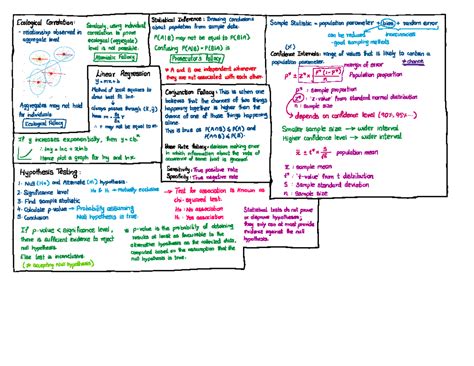 Ecological Correlation:
- relationship observed in
aggregate level
Aggregates may not hold
for individuals
Ecological Fallacy
Similarly, using individual
correlation to prove
ecological (aggregate)
level is not possible.
Atomistic Fallacy
Linear Regression
y = mx + b
Method of least squares to
draw best fit line
- always passes through (x̄, ȳ)
- may not be equal to m
If y increases exponentially, then y = cbˣ
- lny = lnc + xlnb
Hence plot a graph for lny and x
Statistical Inference: Drawing conclusions
about population from sample data
P(A|B) may not be equal to P(B|A)
Confusing P(A|B) = P(B|A) is
Prosecutor's Fallacy
* A and B are independent whenever
they are not associated with each other.
Conjunction Fallacy: This is when one
believes that the chances of two things
happening together is higher than the
chance of one of those things happening
alone.
This is true as P(A∩B) ≤ P(A) and
P(A∩B) ≤ P(B)
Base Rate Fallacy: decision making error
in which information about the rate of
occurrence of some trait is ignored.
Sensitivity: True positive rate
Specificity: True negative rate
Sample Statistic = population parameter + bias + random error
can be reduced
- good sampling methods
inaccuracies
* chance
Confidence Intervals: range of values that is likely to contain a
population parameter.
margin of error
p* ± z* × √(p*(1-p*)/n) Population proportion
p* : sample proportion
z* : 'z-value' from standard normal distribution
n : sample size
depends on confidence level (90%, 95% ...)
Smaller sample size → wider interval
Higher confidence level → wider interval
x̄ ± t* × s/√n population mean
x̄ : sample mean
t* : 't-value' from t distribution
s : Sample standard deviation
n : Sample size
Hypothesis Testing:
1. Null (H₀) and Alternate (H₁) hypothesis.
H₀ & H₁ → Mutually exclusive
2. Significance level
3. Find sample statistic
4. Calculate p-value → Probability assuming
Null hypothesis is true.
5. Conclusion
If p-value < significance level,
there is sufficient evidence to reject
null hypothesis.
Else test is inconclusive
(≠ accepting null hypothesis)
→ Test for association is known as
chi-squared test.
H₀ : No association
H₁ : Yes association
p-value is the probability of obtaining
results at least as favourable to the
alternative hypothesis as the collected data,
computed based on the assumption that the
null hypothesis is true.
Statistical tests do not prove
or disprove hypotheses;
they only can at most provide
evidence against the null
hypothesis.